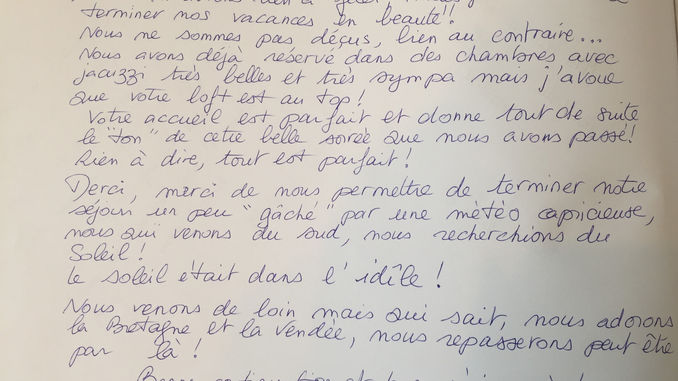 terminer nos vacances en beauté !!
Nous ne sommes pas déçus, bien au contraire...
Nous avons déjà réservé dans des chambres avec
jacuzzi très belles et très sympa mais j'avoue
que votre loft est au top !
Votre accueil est parfait et donne tout de suite
le "ton" de cette belle soirée que nous avons passé !
Rien à dire, tout est parfait !
Merci, merci de nous permettre de terminer notre
séjour un peu "gâché" par une météo capricieuse,
nous qui venons du sud, nous recherchions du
Soleil !
Le soleil était dans l'idîle !
Nous venons de loin mais qui sait, nous adorons
la Bretagne et la Vendée, nous repasserons peut être
par là !